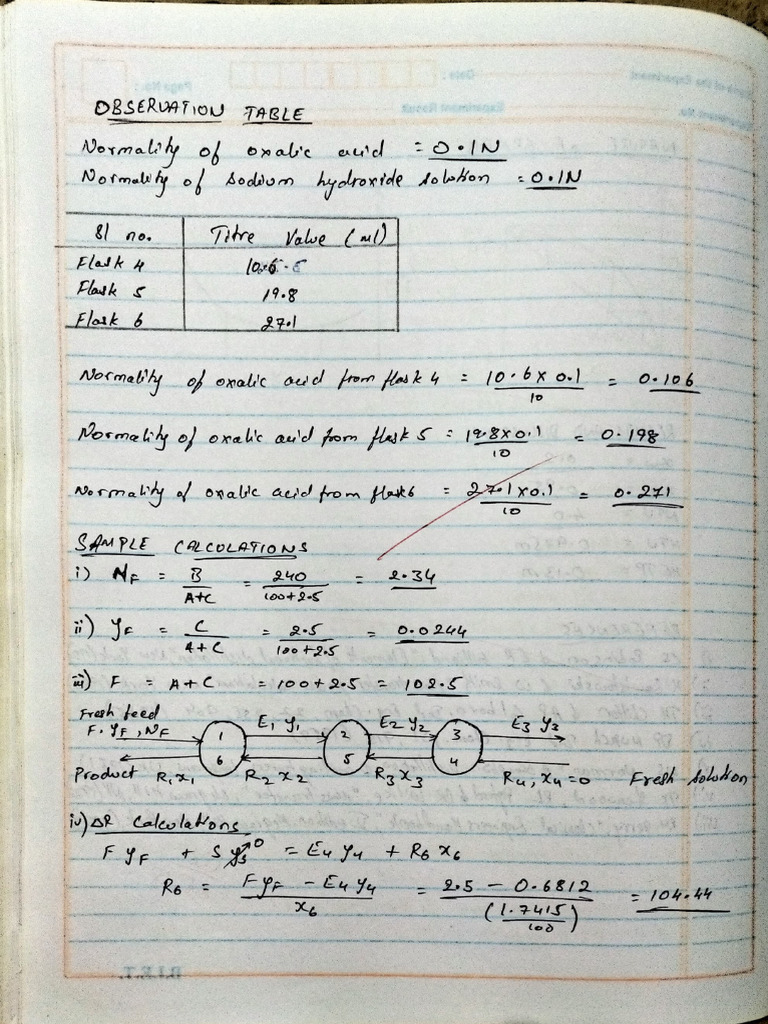 OBSERVATION TABLE
Normality of oxalic acid = 0.1N
Normality of sodium hydroxide solution = 0.1N
Sl no. Titre Value (ml)
Flask 4
Flask 5 19.8
Flask 6 27.1
Normality of oxalic acid from flask 4 = 10.6 x 0.1 / 10 = 0.106
Normality of oxalic acid from flask 5 = 19.8 x 0.1 / 10 = 0.198
Normality of oxalic acid from flask 6 = 27.1 x 0.1 / 10 = 0.271
SAMPLE CALCULATIONS
i) NF = B / A+C = 240 / 100+2.5 = 2.34
ii) yF = C / A+C = 2.5 / 100+2.5 = 0.0244
iii) F = A+C = 100+2.5 = 102.5
Fresh feed
F, yF, NF 1 E1 y1 2 E2 y2 3 E3 y3
6 5 4
Product R1x1 R2 x2 R3x3 R4, x4=0 Fresh solution
iv) ΔR Calculations
F yF + S ys→0 = E4 y4 + R6 x6
R6 = F yF - E4 y4 / x6 = 2.5 - 0.6812 / (1.7415 / 100) = 104.44
B.I.E.T.